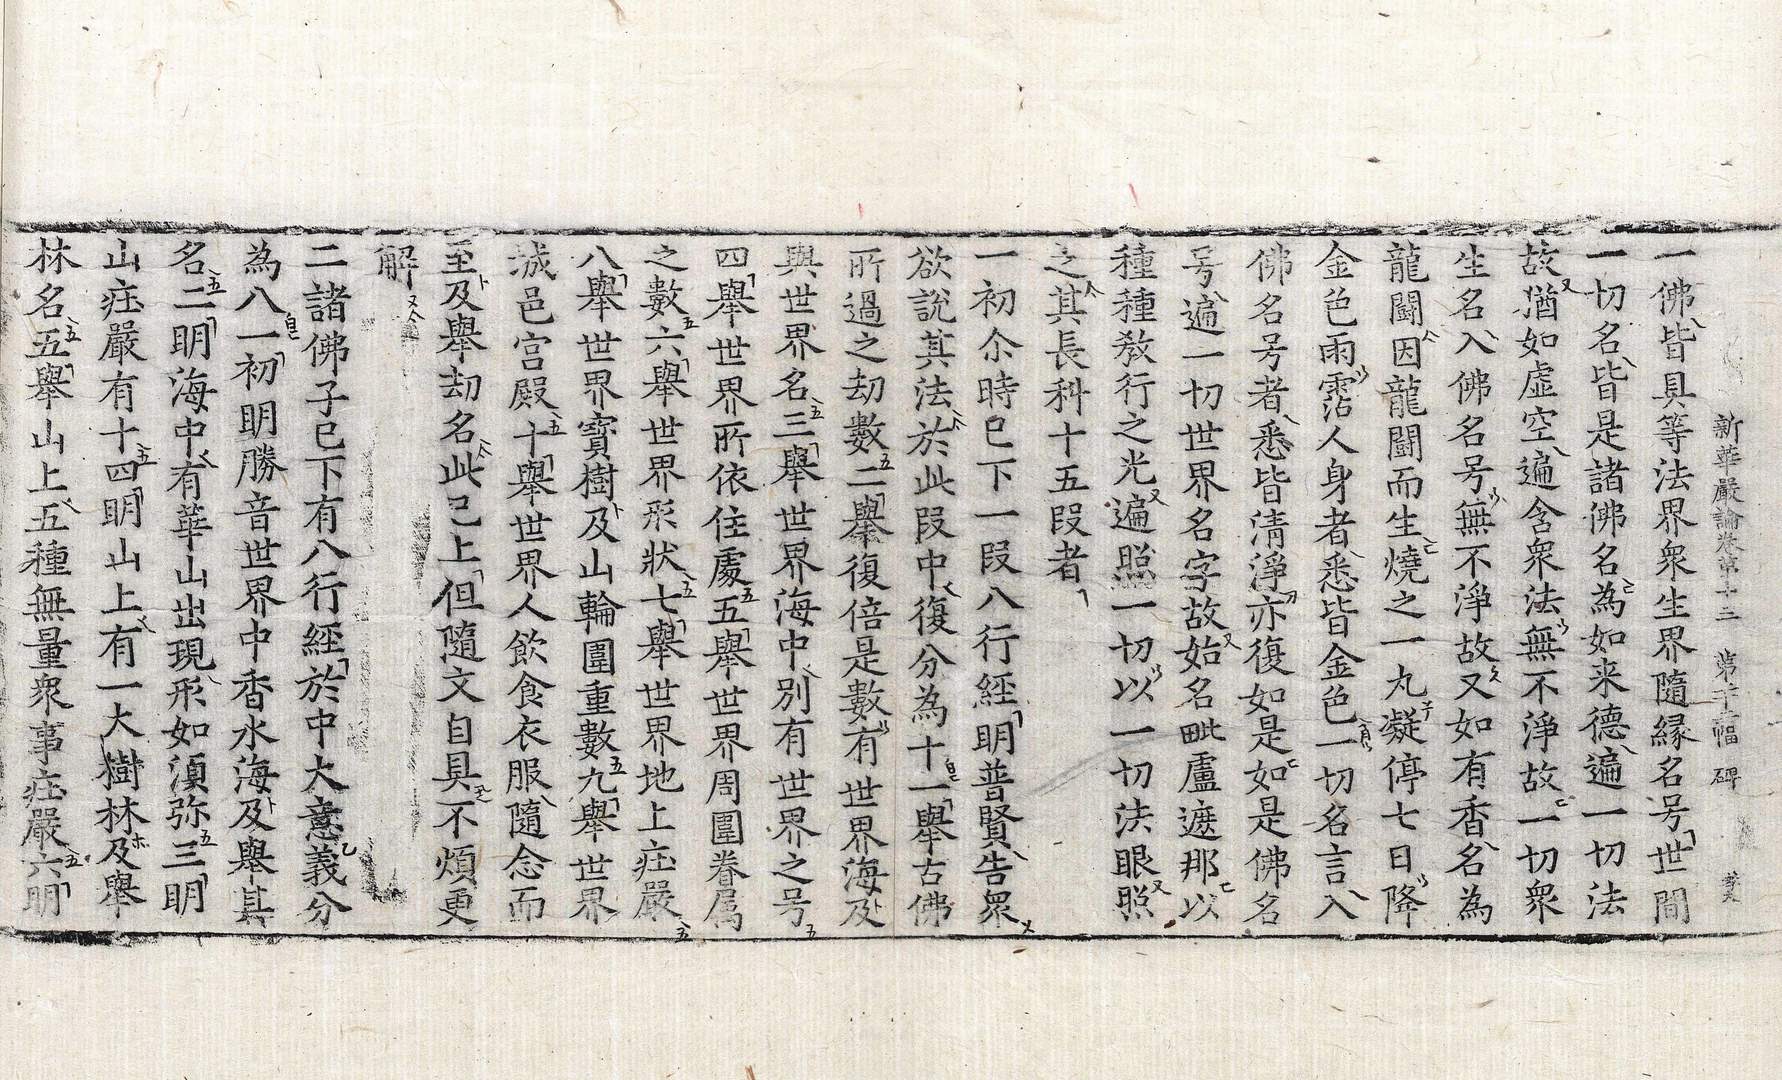 新華嚴論卷第十三 第二十幅 碑
一佛皆具等法界衆生界隨緣名号世間
一切名皆是諸佛名為如来德遍一切法
故猶如虛空遍含衆法無不淨故一切衆
生名入佛名号無不淨故又如有香名為
龍鬪因龍鬪而生燒之一丸凝停七日降
金色雨霑人身者悉皆金色一切名言入
佛名号者悉皆清淨亦復如是如是佛名
号遍一切世界名字故始名毗盧遮那以
種種教行之光遍照一切以一切法眼照
之其長科十五段者
一初尒時已下一段八行經明普賢告衆
欲說其法於此段中復分為十一舉古佛
所過之劫數二舉復倍是數有世界海及
與世界名三舉世界海中別有世界之号
四舉世界所依住處五舉世界周圍眷属
之數六舉世界形狀七舉世界地上庄嚴
八舉世界寶樹及山輪圍重數九舉世界
城邑宮殿十舉世界人飲食衣服隨念而
至及舉劫名此已上但隨文自具不煩更
解
二諸佛子已下有八行經於中大意義分
為八一初明勝音世界中香水海及舉其
名二明海中有華山出現形如湏弥三明
山庄嚴有十四明山上有一大樹林及舉
林名五舉山上五種無量衆事庄嚴六明